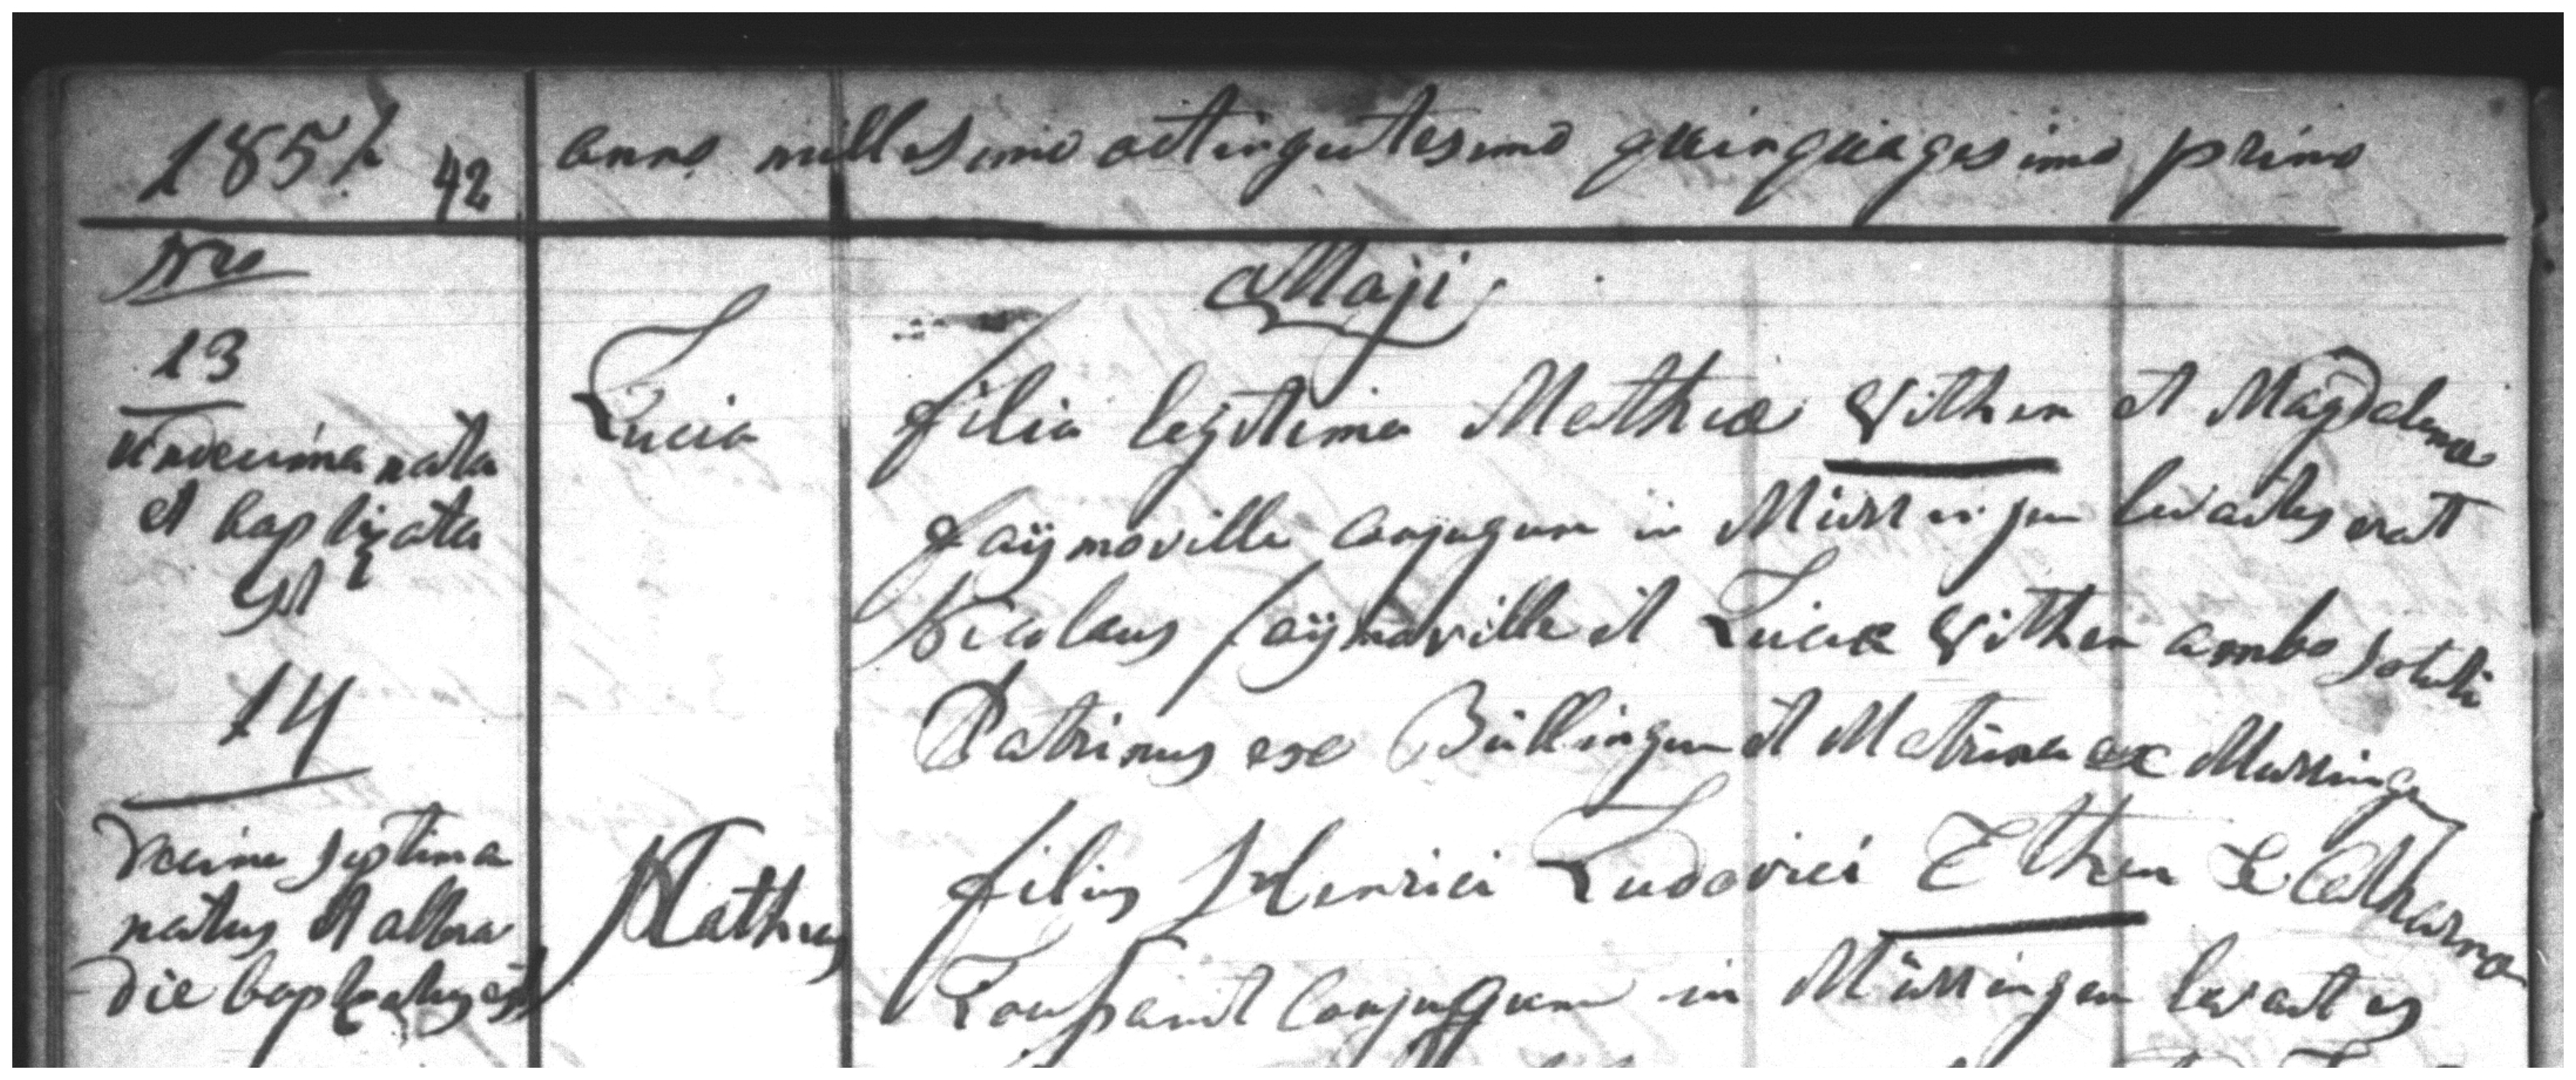 1851 42 anno millesimo octingentesimo quinquagesimo primo
Nro
Maji
13
undecima nata
et baptizata
est
Lucia
filia legitima Mathiæ Vithen et Magdalena
Faÿmoville conjugum in Mürringen levantes erant
Nicolaus Faÿmoville et Lucia Vithen ambo soluti
Patrinus ex Büllingen et Matrina ex Mürringen
14
decima septima
natus et altera
die baptizatus est
Mathias
filius Henrici Ludovici Ethen & Catharina
Toussaint conjugum in Mürringen levantes